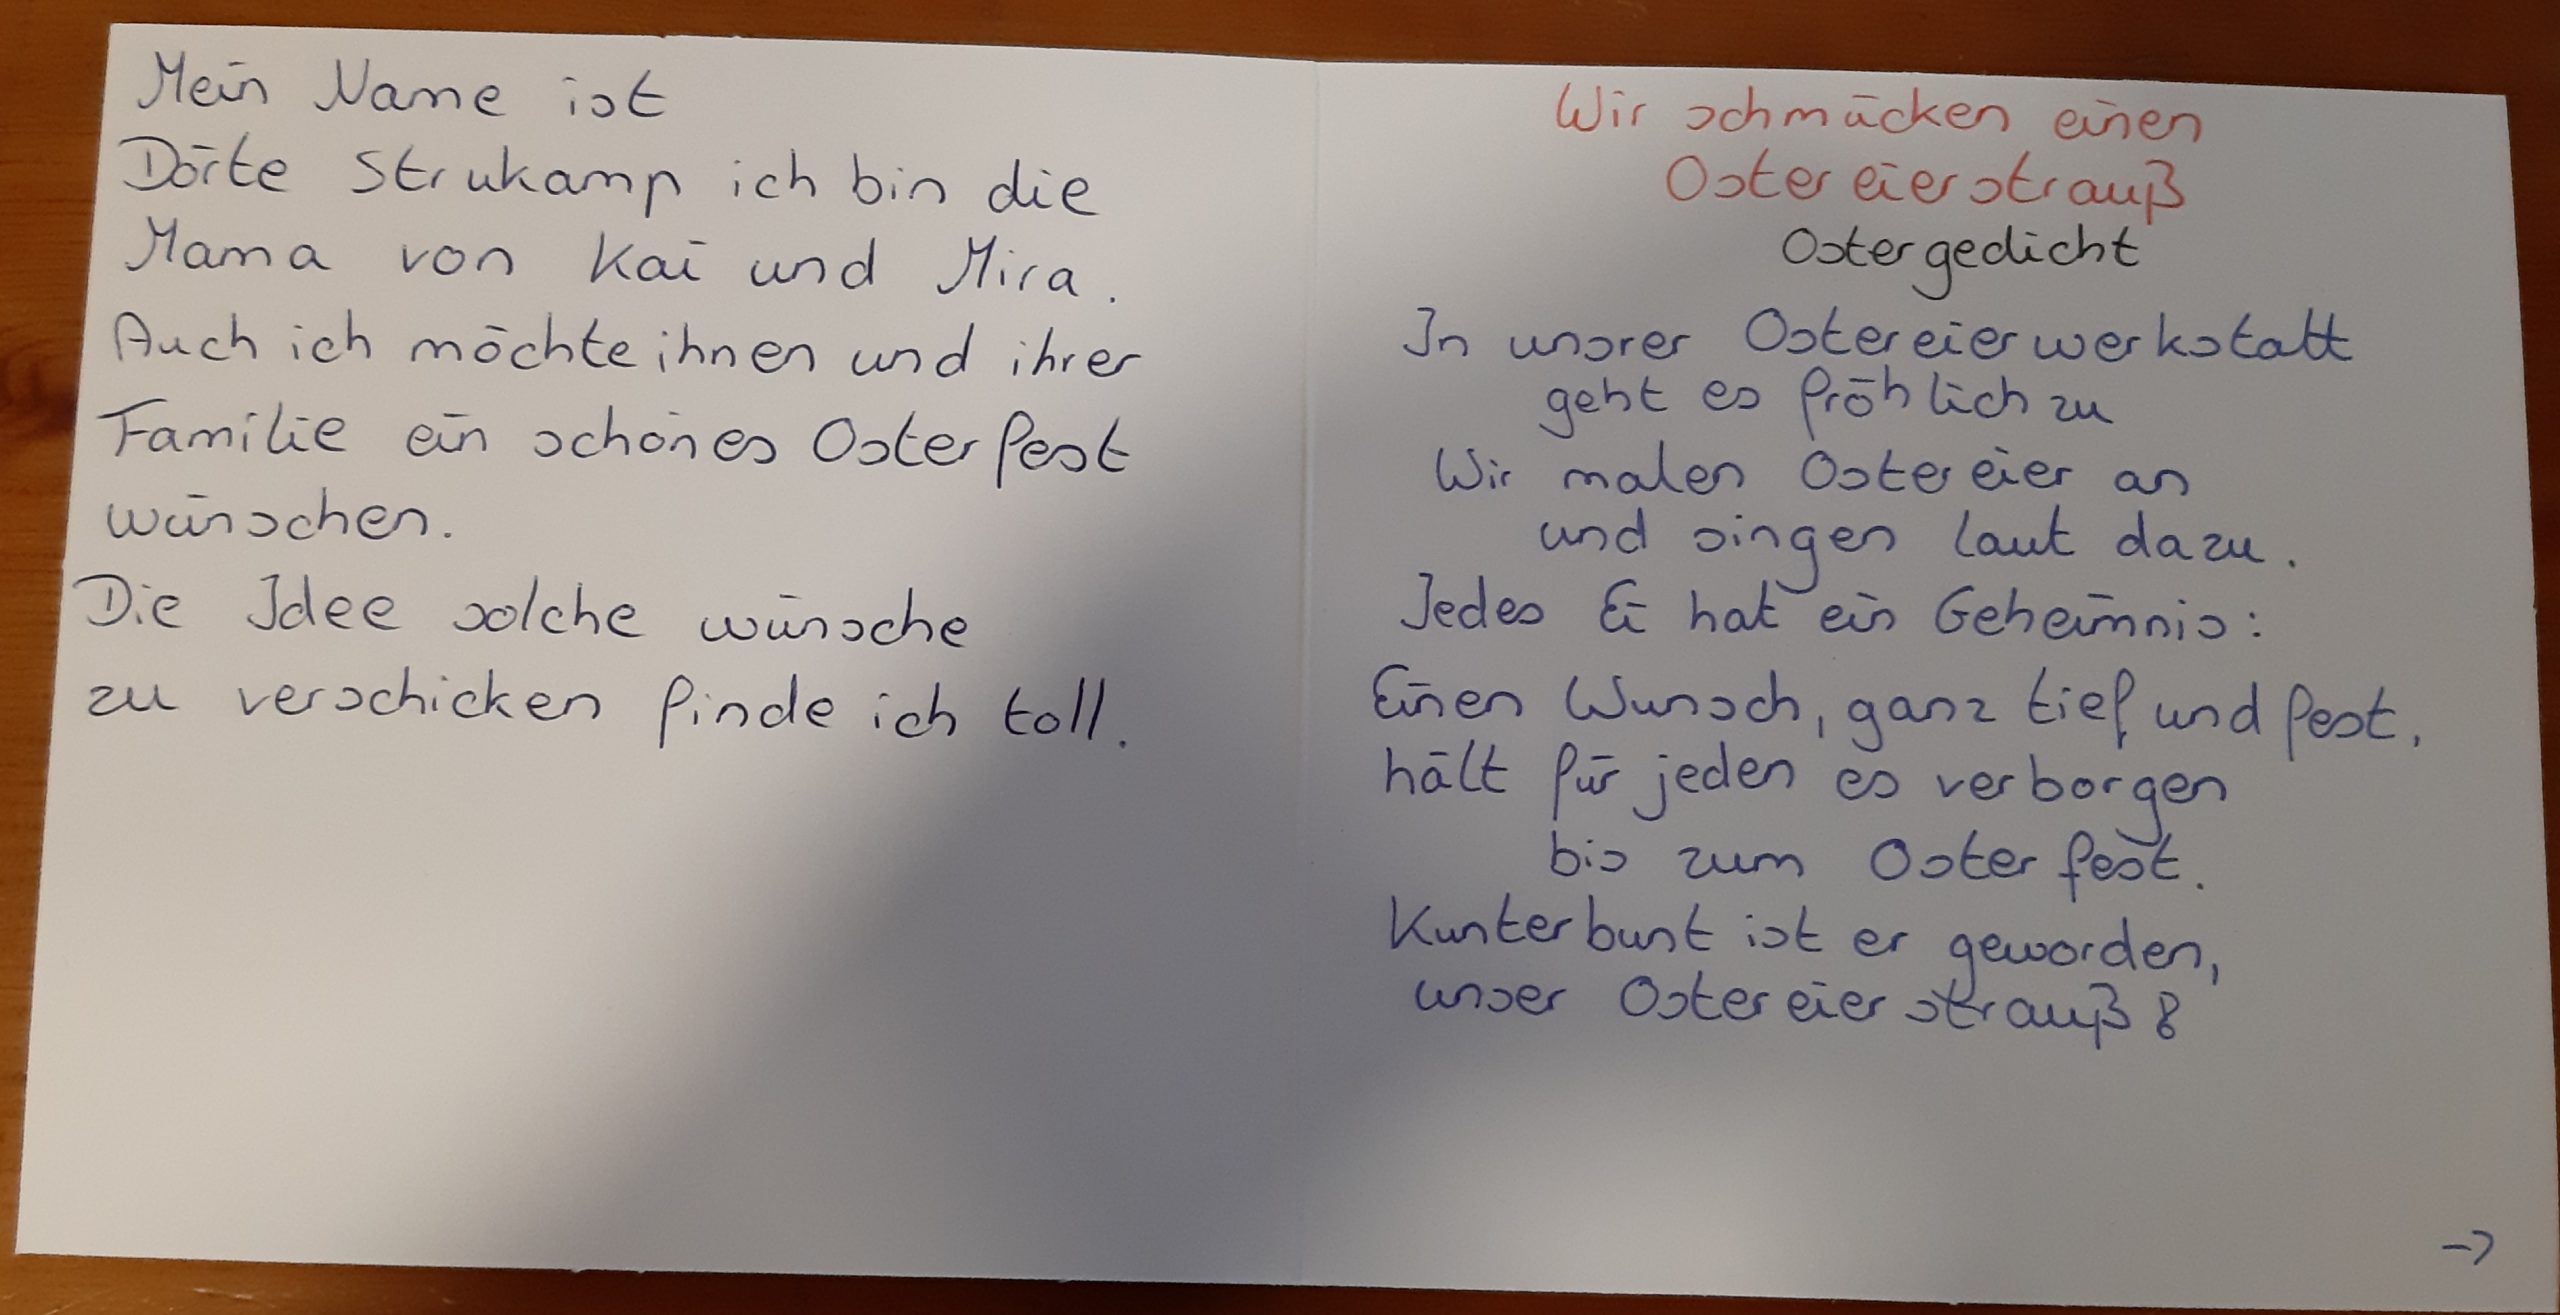 Mein Name ist
Dörte Strukamp ich bin die
Mama von Kai und Mira.
Auch ich möchte ihnen und ihrer
Familie ein schönes Osterfest
wünschen.
Die Idee solche wünsche
zu verschicken finde ich toll.
Wir schmücken einen
Ostereierstrauß
Ostergedicht
In unsrer Ostereierwerkstatt
geht es fröhlich zu
Wir malen Ostereier an
und singen laut dazu.
Jedes Ei hat ein Geheimnis:
Einen Wunsch, ganz tief und fest,
hält für jeden es verborgen
bis zum Osterfest.
Kunterbunt ist er geworden,
unser Ostereierstrauß!
->